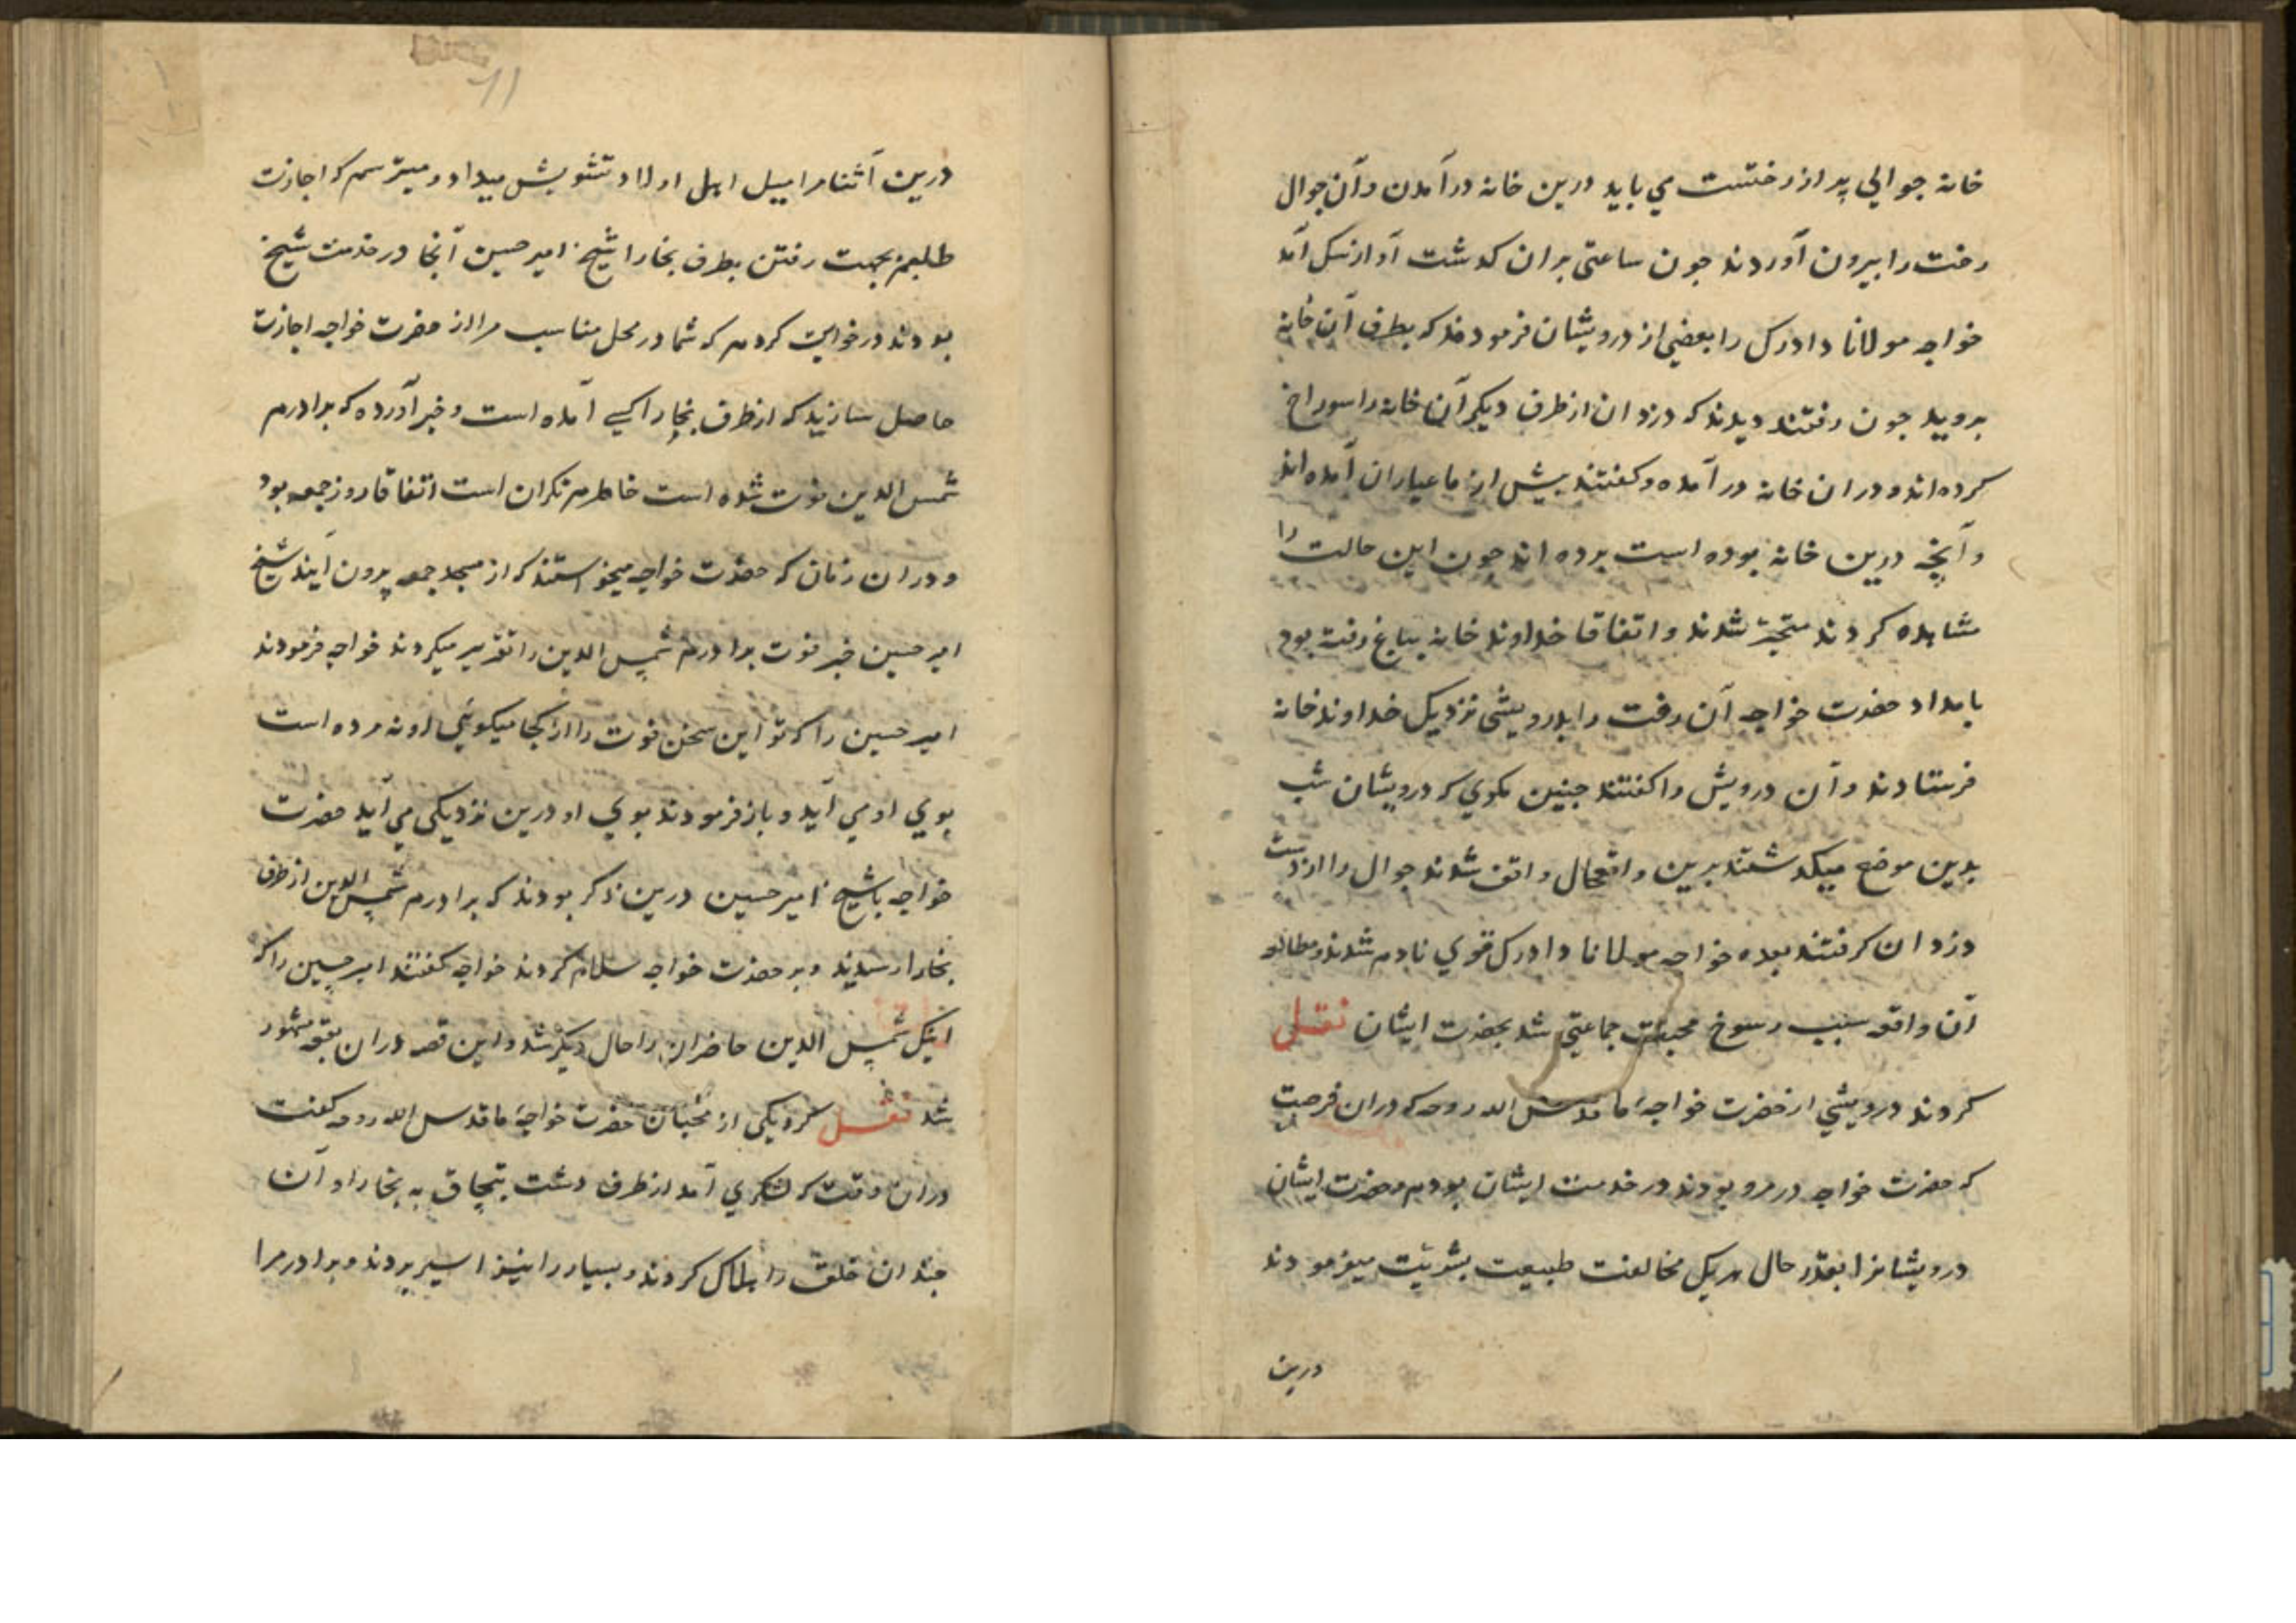 خانه جوالی پر از رختست می باید درین خانه درآمدن و آن جوال
رخت را بیرون آوردند چون ساعتی بران کدشت آواز سک آمد
خواجه مولانا دادرک را بعضی از درویشان فرمودند که بطرف آن خانه
بروید چون رفتند دیدند که دزدان از طرف دیکر آن خانه را سوراخ
کرده اند و دران خانه درآمده و کفتند پیش از ما عیاران آمده اند
و آنچه درین خانه بوده است برده اند چون این حالت را
مشاهده کردند متحیر شدند و اتفاقا خداوند خانه بباغ رفته بود
بامداد حضرت خواجه آن رخت را بدرویشی نزدیک خداوند خانه
فرستادند و آن درویش را کفتند چنین بکوی که درویشان شب
بدین موضع میکدشتند برین واقعحال واقف شدند جوال را از دست
دزدان کرفتند بعده خواجه مولانا دادرک قوی نادم شدند و مطالعه
آن واقعه سبب رسوخ محبت جماعتی شد بحضرت ایشان نقل
کردند درویشی از حضرت خواجهٔ ما قدس الله روحه که دران فرصت
که حضرت خواجه در مرو بودند در خدمت ایشان بودم و حضرت ایشان
درویشانرا بقدر حال هریک مخالفت طبیعت بشریت میفرمودند
درین
۱۱
درین آثنا مرا میل اهل اولاد تشویش میداد و میترسم که اجازت
طلبم بجهت رفتن بطرف بخارا شیخ امیر حسین آنجا در خدمت شیخ
بودند درخواست کردم که شما در محل مناسب مرا از حضرت خواجه اجازت
حاصل سازید که از طرف بخارا کسی آمده است و خبر آورده که برادرم
شمس الدین فوت شده است خاطرم نکران است اتفاقا روز جمعه بود
و دران زمان که حضرت خواجه میخواستند که از مسجد جمعه بیرون آیند شیخ
امیر حسین خبر فوت برادرم شمس الدین را تقریر میکردند خواجه فرمودند
امیر حسین را که تو این سخن فوت را از کجا میکوئی او نه مرده است
بوی او می آید و باز فرمودند بوی او درین نزدیکی می آید حضرت
خواجه با شیخ امیر حسین درین ذکر بودند که برادرم شمس الدین از طرف
بخارا رسیدند و بر حضرت خواجه سلام کردند خواجه کفتند امیر حسین را که
اینک شمس الدین حاضران را حال دیکر شد و این قصه دران بقعه مشهور
شد نقل کرد یکی از محبان حضرت خواجهٔ ما قدس الله روحه کفت
دران وقت که لشکری آمد از طرف دشت قبچاق به بخارا و آن
چندان خلق را هلاک کردند و بسیار را نیز اسیر بردند و برادر مرا